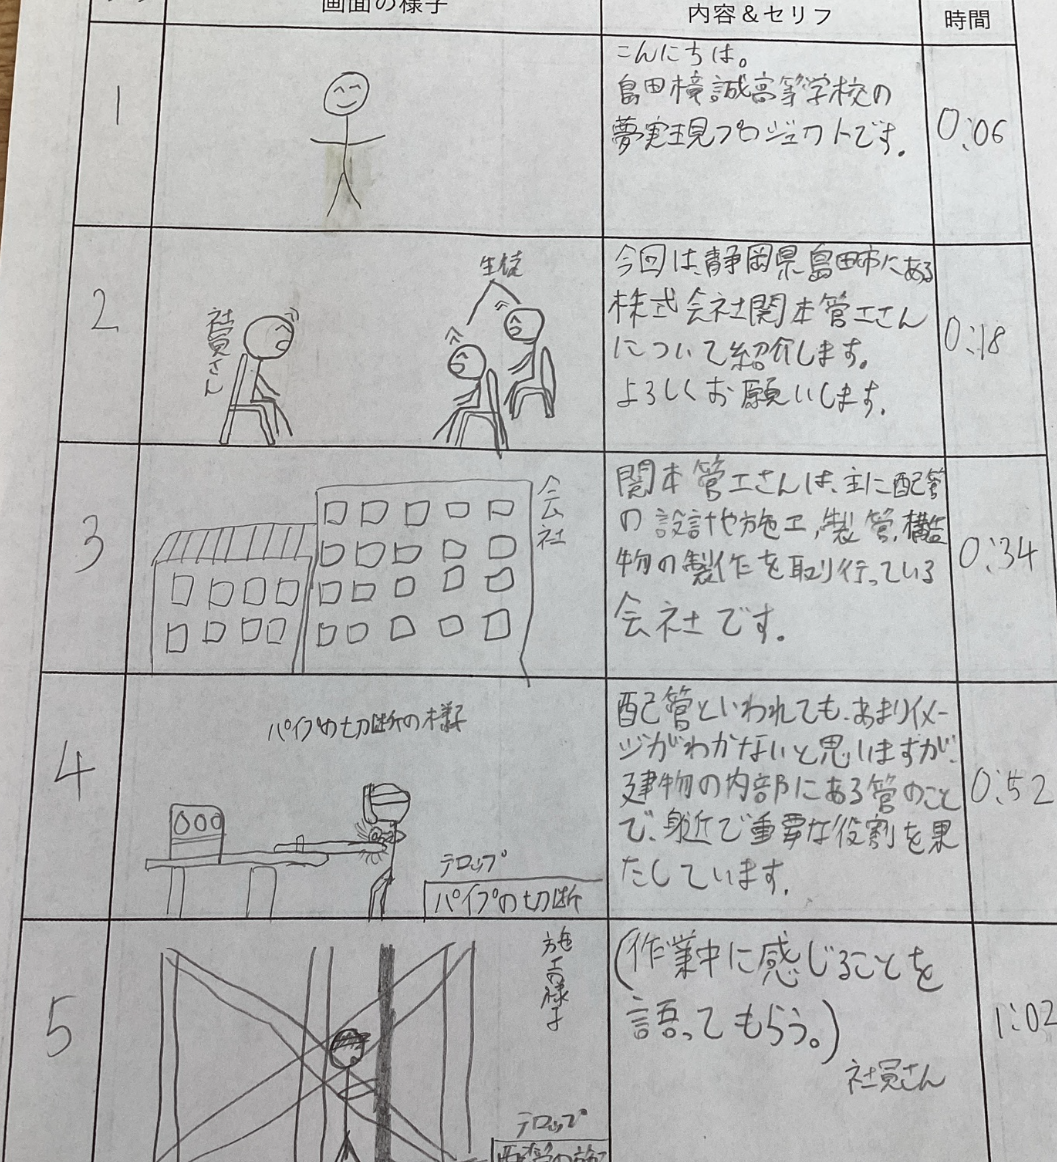 画面の様子
内容＆セリフ
時間
1
こんにちは。
島田樟誠高等学校の
夢実現プロジェクトです。
0:06
2
生徒
社員さん
今回は、静岡県島田市にある
株式会社関本管工さん
について紹介します。
よろしくお願いします。
0:18
3
会社
関本管工さんは、主に配管
の設計や施工,製管,構造
物の製作を取り行っている
会社です。
0:34
4
パイプの切断の様子
テロップ
パイプの切断
配管といわれても、あまりイメー
ジがわかないと思いますが、
建物の内部にある管のこと
で、身近で重要な役割を果
たしています。
0:52
5
施工の様子
テロップ
配管の施
(作業中に感じることを
語ってもらう。)
社員さん
1:02